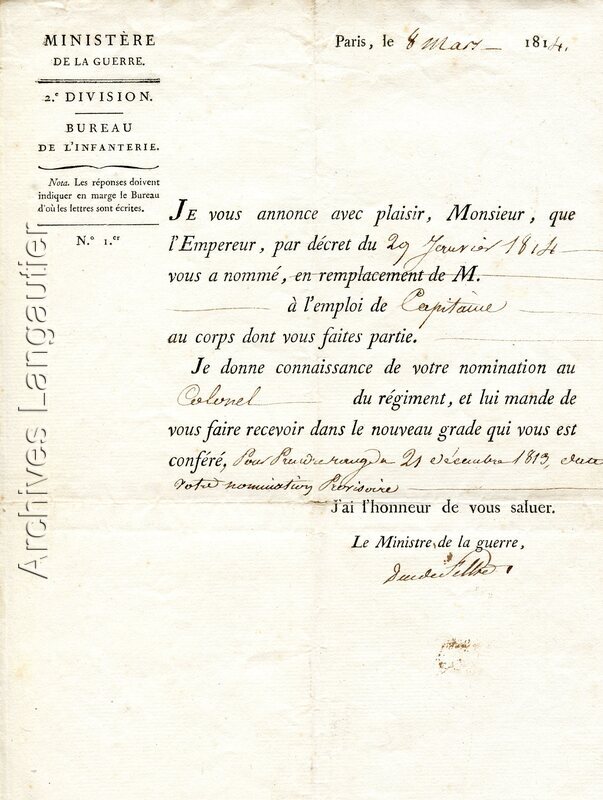 MINISTÈRE
DE LA GUERRE.
2.e DIVISION.
BUREAU
DE L'INFANTERIE.
Nota. Les réponses doivent
indiquer en marge le Bureau
d'où les lettres sont écrites.
N.o 1.er
Paris, le 8 Mars 1814.
JE vous annonce avec plaisir, Monsieur, que
l'Empereur, par décret du 29 Janvier 1814
vous a nommé, en remplacement de M.
à l'emploi de Capitaine
au corps dont vous faites partie.
Je donne connaissance de votre nomination au
Colonel du régiment, et lui mande de
vous faire recevoir dans le nouveau grade qui vous est
conféré, Pour Prendre rang du 21 décembre 1813, date
votre nomination Provisoire
J'ai l'honneur de vous saluer.
Le Ministre de la guerre,
Duc de Feltre
Archives Langautier